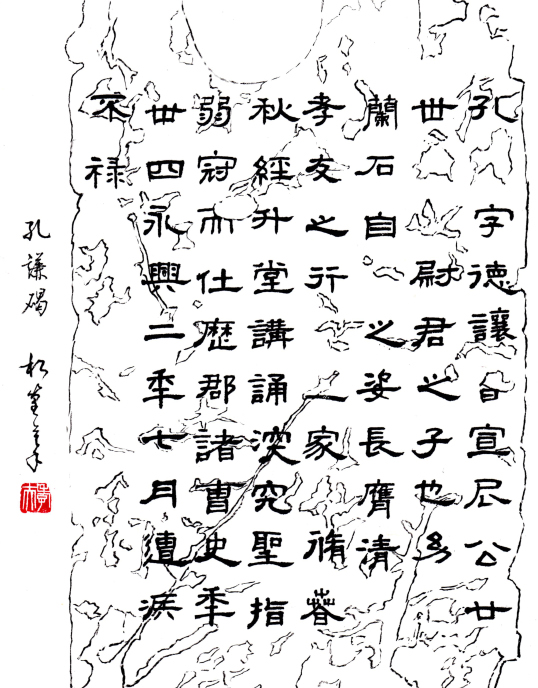 孔字德讓者宣尼公廿
世尉君之子也幼
蘭石自之姿長膺清
孝友之行一家脩春
秋經升堂講誦深究聖指
弱冠而仕歷郡諸曹史年
卅四永興二年七月遭疾
不禄
孔謙碣